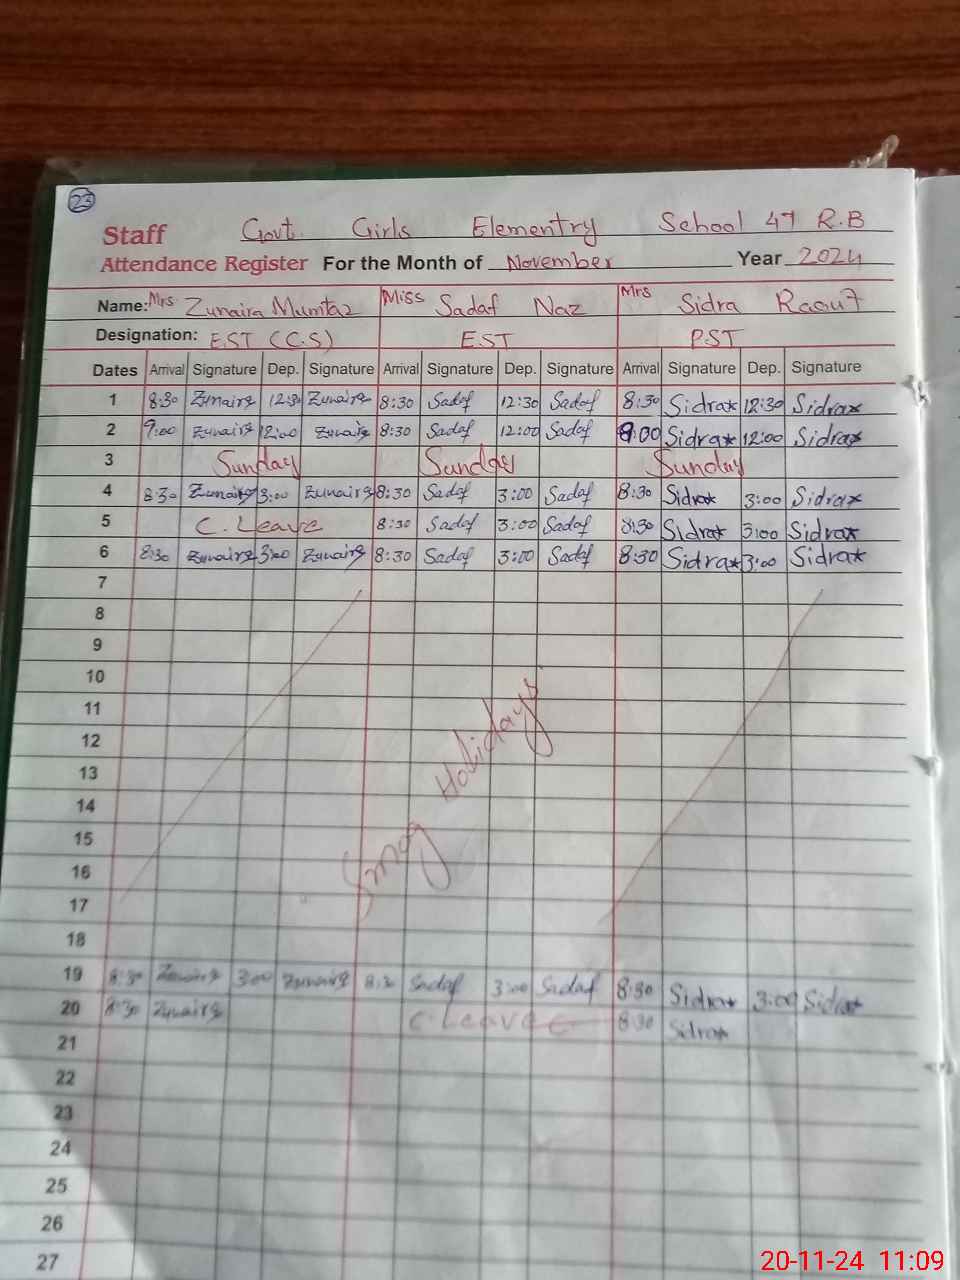 23
Staff Govt. Girls Elementry School 47 R.B
Attendance Register For the Month of November Year 2024
Name: Mrs Zunaira Mumtaz Miss Sadaf Naz Mrs Sidra Raouf
Designation: EST (C.S) EST PST
Dates Arrival Signature Dep. Signature Arrival Signature Dep. Signature Arrival Signature Dep. Signature
1 8:30 Zunaira 12:30 Zunaira 8:30 Sadaf 12:30 Sadaf 8:30 Sidra 12:30 Sidra
2 9:00 Zunaira 12:00 Zunaira 8:30 Sadaf 12:00 Sadaf 9:00 Sidra 12:00 Sidra
3 Sunday Sunday Sunday
4 8:30 Zunaira 3:00 Zunaira 8:30 Sadaf 3:00 Sadaf 8:30 Sidra 3:00 Sidra
5 C. Leave 8:30 Sadaf 3:00 Sadaf 8:30 Sidra 3:00 Sidra
6 8:30 Zunaira 3:00 Zunaira 8:30 Sadaf 3:00 Sadaf 8:30 Sidra 3:00 Sidra
7
8
9
10
11
12
13
14
15
16
17
Smog Holidays
18
19 8:30 Zunaira 3:00 Zunaira 8:30 Sadaf 3:00 Sadaf 8:30 Sidra 3:00 Sidra
20 8:30 Zunaira C. Leave 8:30 Sidra
21
22
23
24
25
26
27
20-11-24 11:09